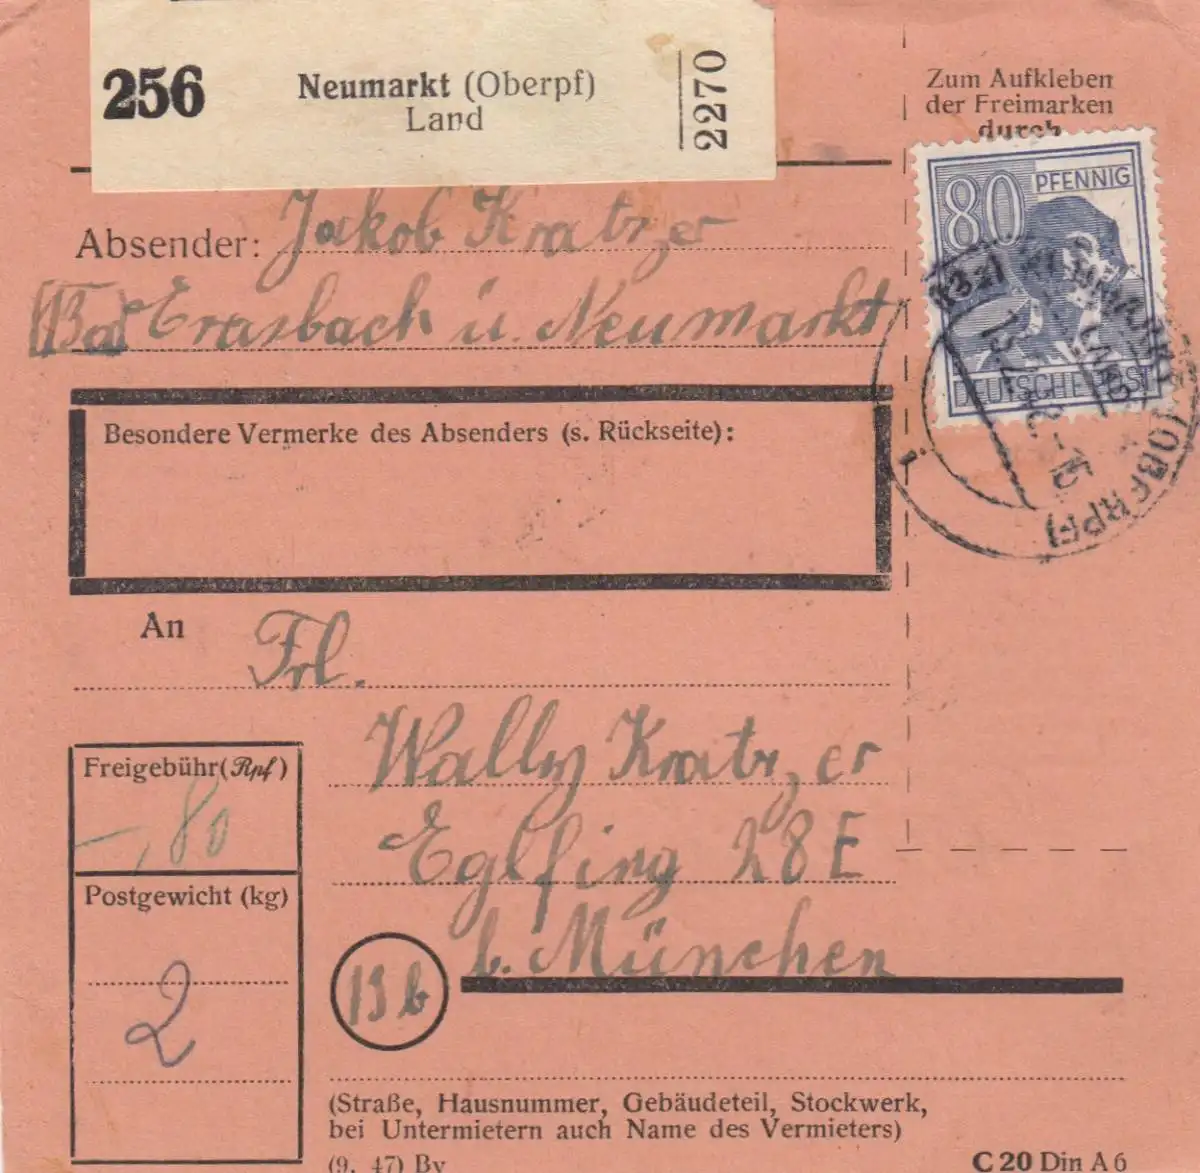 256
Neumarkt (Oberpf)
Land
2270
Zum Aufkleben
der Freimarken
durch
80 PFENNIG
DEUTSCHE POST
Absender: Jakob Kratzer
Erasbach ü. Neumarkt
(OBERPF)
Besondere Vermerke des Absenders (s. Rückseite):
An Frl.
Wally Kratzer
Eglfing 28 E
b. München
13b
Freigebühr (Rpf)
-,80
Postgewicht (kg)
2
(Straße, Hausnummer, Gebäudeteil, Stockwerk,
bei Untermietern auch Name des Vermieters)
(9. 47) By
C 20 Din A 6